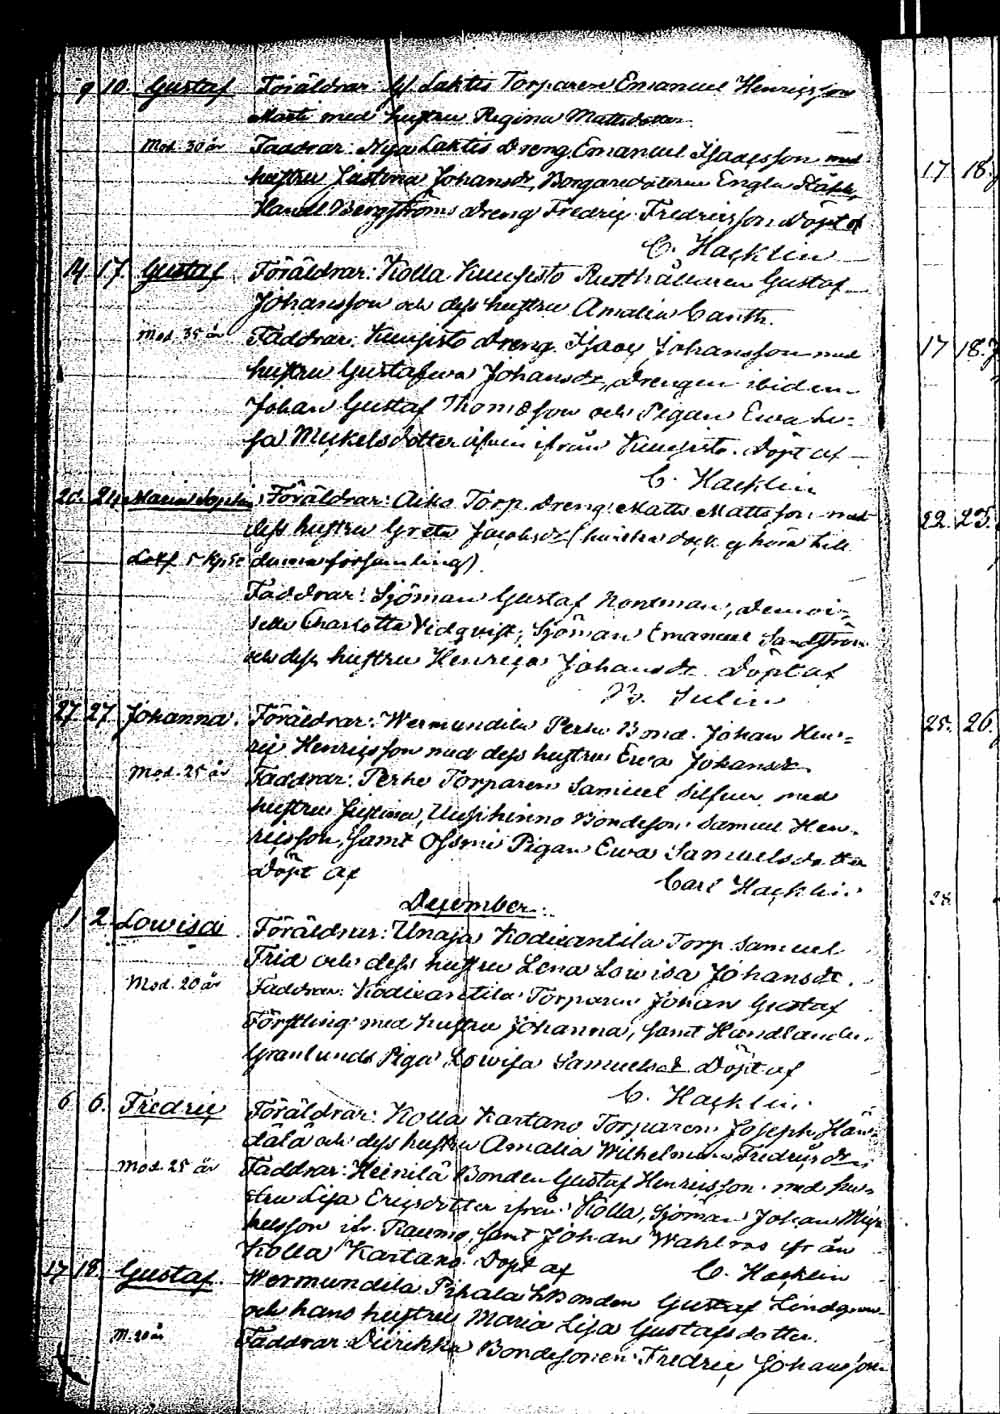 9 10. Gustaf Föräldrar: Gl. Laktis Torparen Emanuel Henricsson
Matti med hustru Regina Mattsdotter.
Mod. 30 år Faddrar: Nya Laktis Dreng Emanuel Isacsson med
hustru Justina Johansdr, Borgaredottren Engla
Handl Bergströms Dreng Fredric Fredricsson Döpt af
C. Hacklin
14. 17. Gustaf Föräldrar: Kolla Kuusisto Rusthållaren Gustaf
Johansson och dess hustru Amalia Canth.
Mod. 35 år Faddrar: Kuusisto Dreng Isaac Johansson med
hustru Gustafwa Johansdr, Drengen ibidem
Johan Gustaf Thomasson och Pigan Ewa Lo-
sa Mickelsdotter äfven ifrån Kuusisto. Döpt af
C. Hacklin
20. 24. Maria Sophia Föräldrar: Aiko Torp. Dreng Matts Mattsson med
dess hustru Greta Jacobsdr (hwilka dock ej höra till
denna församling).
Faddrar: Sjöman Gustaf Nordman, Demoi-
selle Charlotta Vidqvist, Sjöman Emanuel Sandström
och dess hustru Henrica Johansdr. Döpt af
B. Sulin
27. 27. Johanna. Föräldrar: Wermundila Perho Bond. Johan Hen-
ric Henricsson med dess hustru Ewa Johansdr
Mod. 25 år Faddrar: Perho Torparen Samuel Silfver med
hustru Justina, Bondeson Samuel Hen-
ricsson, samt Pigan Ewa Samuelsdotter
Döpt af Carl Hacklin
December.
1. 2. Lowisa Föräldrar: Unaja Kodisantila Torp. Samuel
Frid och dess hustru Lena Lowisa Johansdr.
Mod. 20 år Faddrar: Kodisantila Torparen Johan Gustaf
Förstling med hustru Johanna, samt Handlanden
Granlunds Piga Lowisa Samuelsd. Döpt af
C. Hacklin.
6. 6. Fredric Föräldrar: Kolla Kartano Torparen Joseph
och dess hustru Amalia Wilhelmina Fredricsdr
Mod. 25 år Faddrar: Heinilä Bonden Gustaf Henricsson med hu-
stru Lisa Ericsdotter ifrån Kolla, Sjöman Johan Mic-
helsson ifr. Raumo, samt Johan Wahlroos ifrån
Kolla Kartano. Döpt af C. Hacklin
17. 18. Gustaf. Wermundila Pihala Bonden Gustaf Lindgren
och hans hustru Maria Lisa Gustafsdotter.
M. 20 år Faddrar: Bondesonen Fredric Johansson
17 18.
17 18.
22. 25.
25. 26.
28.